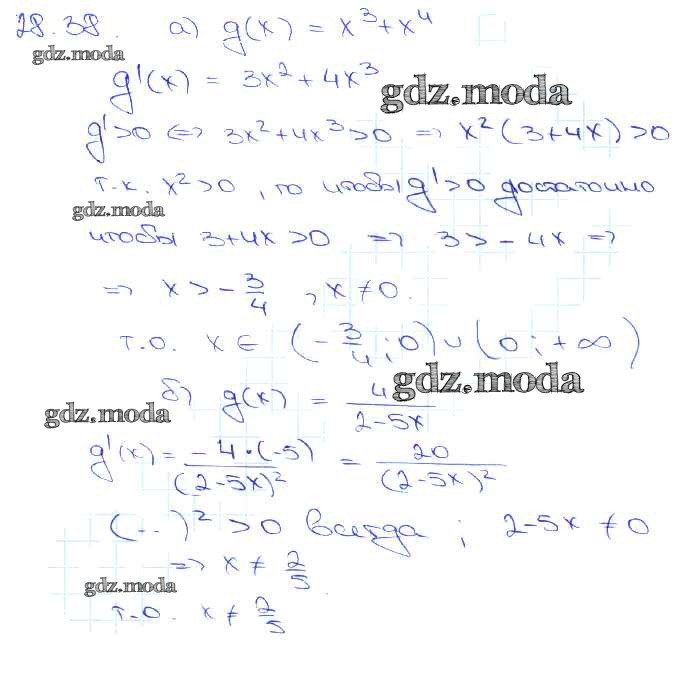 28.38. а) g(x) = x³+x⁴
gdz.moda
g'(x) = 3x²+4x³
gdz.moda
g'>0 ⇔ 3x²+4x³>0 ⇒ x²(3+4x)>0
т.к. x²>0, то чтобы g'>0 достаточно
gdz.moda
чтобы 3+4x>0 ⇒ 3>-4x ⇒
⇒ x>-3/4, x≠0.
т.о. x∈ (-3/4; 0)∪(0; +∞)
gdz.moda
б) g(x) = 4/(2-5x)
gdz.moda
g'(x) = -4·(-5)/(2-5x)² = 20/(2-5x)²
(...)²>0 всегда; 2-5x≠0
⇒ x≠2/5
gdz.moda
т.о. x≠2/5